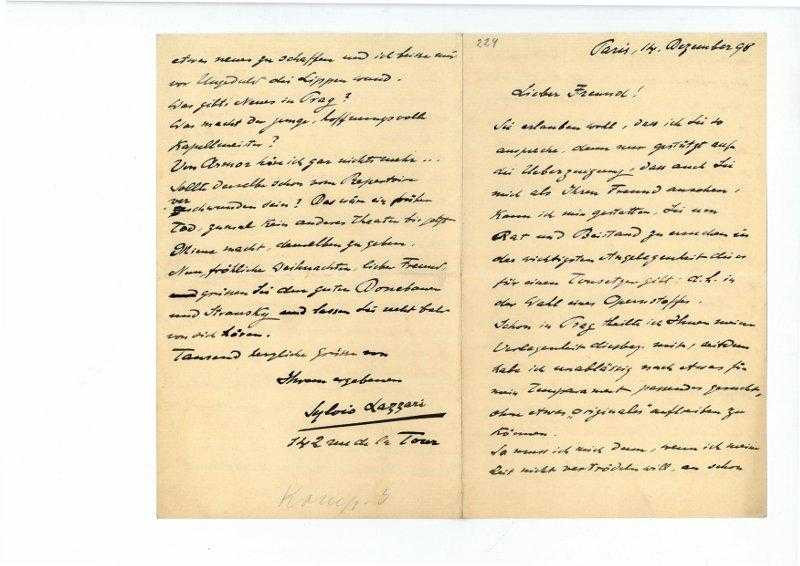 229
Paris, 14. Dezember 98
Lieber Freund!
Sie erlauben wohl, dass ich Sie so
anspreche, denn nur gestützt auf
die Ueberzeugung, dass auch Sie
mich als Ihren Freund ansehen,
kann ich mir gestatten, Sie um
Rat und Beistand zu ersuchen in
der wichtigsten Angelegenheit die es
für einen Tonsetzer gibt: d. h. in
der Wahl eines Opernstoffes.
Schon in Prag theilte ich Ihnen meine
Verlegenheit diesbez. mit, seitdem
habe ich unablässig nach etwas für
mein Temperament passendes gesucht,
ohne etwas "originales" auftreiben zu
können.
So muss ich mich denn, wenn ich meine
Zeit nicht vertrödeln will, an schon
etwas neues zu schaffen und ich beisse mir
vor Ungeduld die Lippen wund.
Was gibts Neues in Prag?
Was macht der junge, hoffnungsvolle
Kapellmeister?
Von Armor höre ich gar nichts mehr...
Sollte derselbe schon vom Repertoire
verschwunden sein? Das wär ein früher
Tod, zumal kein anderes Theater bis jetzt
Miene macht, denselben zu geben.
Nun, fröhliche Weihnachten, lieber Freund
und grüssen Sie den guten Donebauer
und Stransky und lassen Sie recht bald
von sich hören.
Tausend herzliche Grüsse von
Ihrem ergebenen
Sylvio Lazzari
142 rue de la Tour
Komp. 3